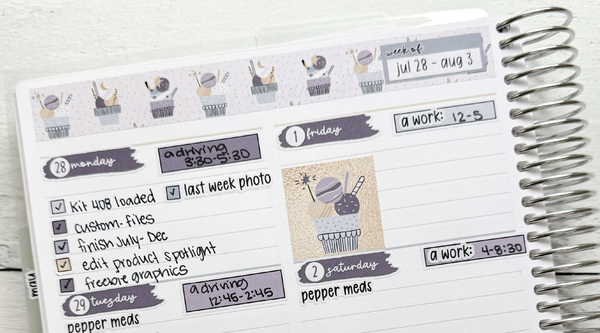 week of
jul 28 - aug 3
28 monday
a driving
3:30-5:30
Kit 408 loaded
last week photo
custom files
finish July-Dec
edit product spotlight
freebie graphics
29 tuesday
a driving
12:45-2:45
pepper meds
1 friday
a work: 12-5
2 saturday
a work: 4-8:30
pepper meds